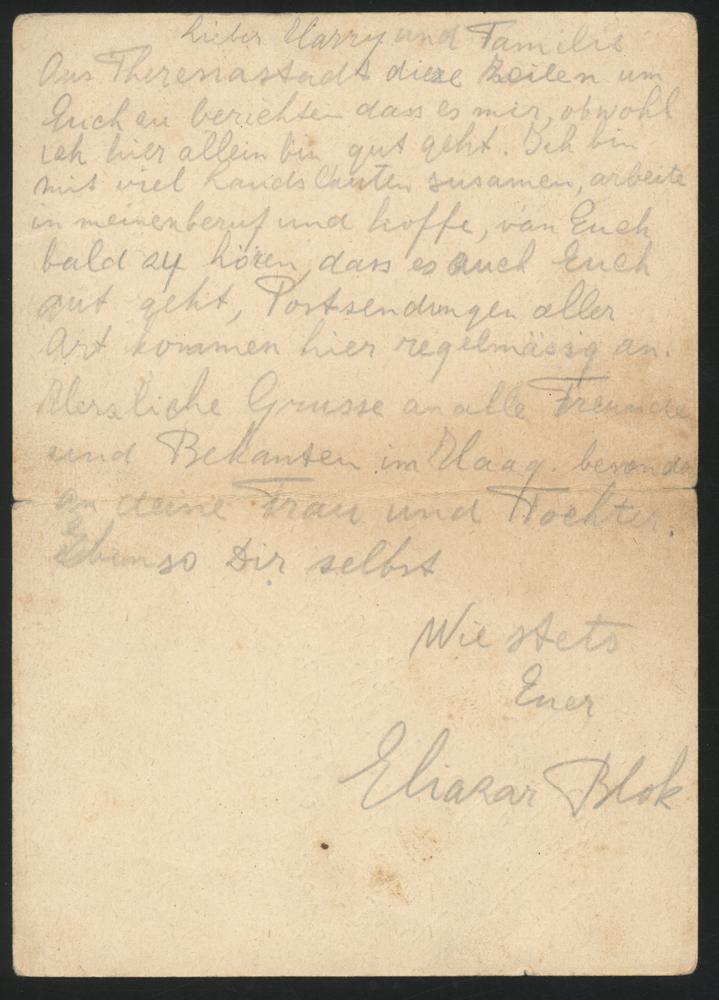 Lieber Harry und Familie
Aus Theresiastadt diese Zeilen um
Euch zu berichten dass es mir, obwohl
ich hier allein bin gut geht. Ich bin
mit viel Landsläuten zusamen, arbeite
in meinen beruf und hoffe, van Euch
bald zu hören, dass es auch Euch
gut geht, Postsendungen aller
Art kommen hier regelmässig an.
Herzliche Grusse an alle Freunde
und Bekanten im Haag. besonder
an deine Frau und Tochter.
Ebenso Dir selbst
Wie stets
Euer
Eliazar Blok